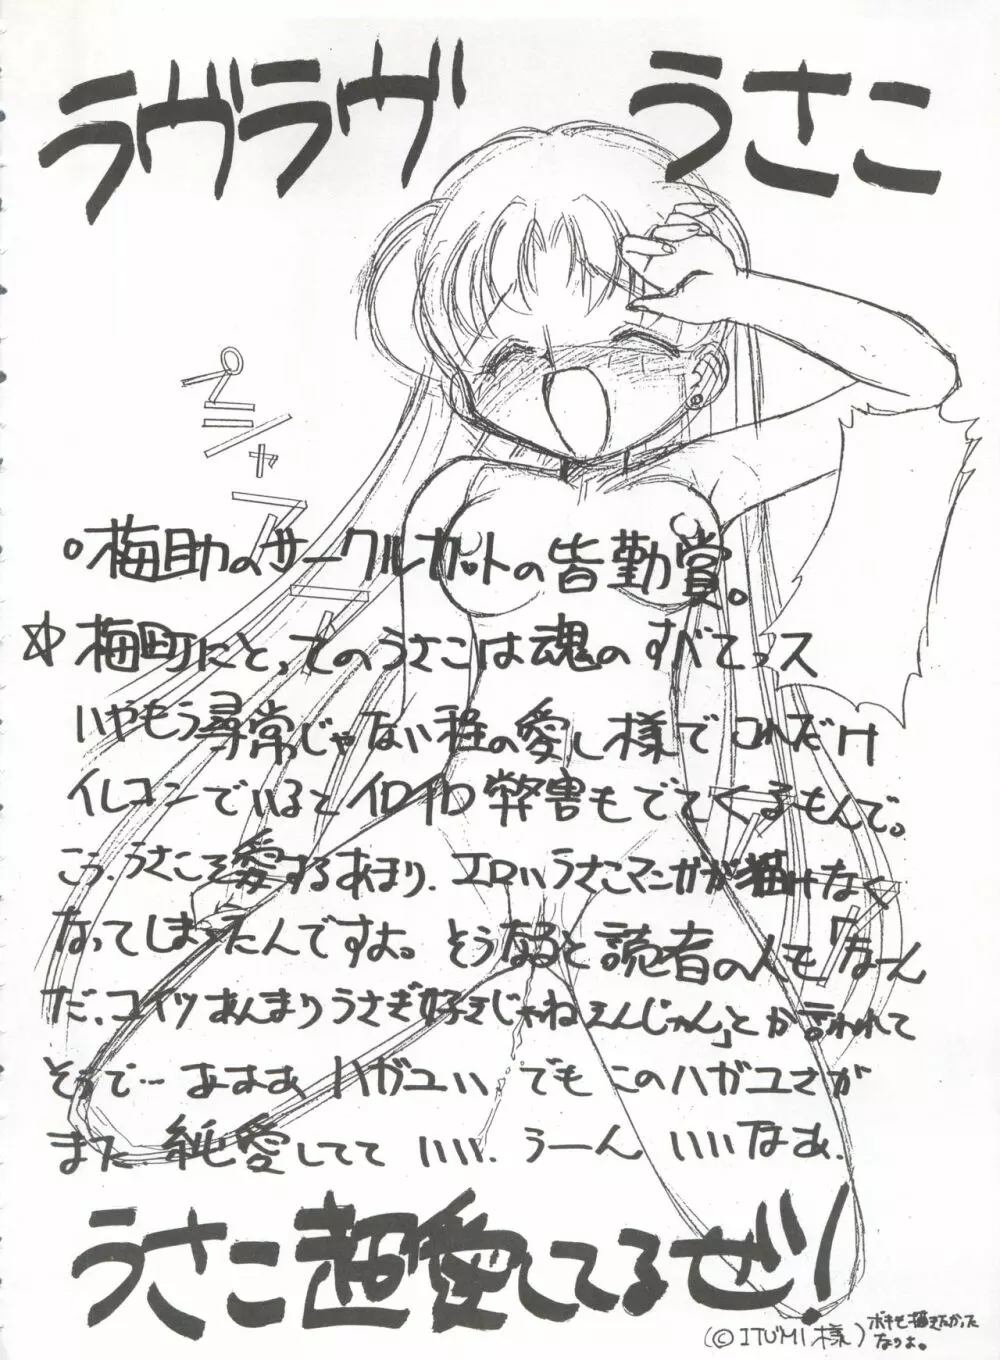 ラヴラヴ うさこ
ペシャアーン
○梅助のサークルカットの皆勤賞。
☆梅町にとってのうさこは魂のすべてっス
いやもう尋常じゃない程の愛し様でこれだけ
イレコンでいるとイロイロ弊害もでてくるもんで。
こう、うさこを愛するあまり、エロいうさこマンガが描けなく
なってしまったんですよ。そうなると読者の人も「なーん
だ、コイツあんまりうさぎ好きじゃねえんじゃん」とか言われて
そうで…ああああ ハガユい でも このハガユさが
また 純愛してて いい、うーん いいなあ、
うさこ超愛してるぜ!
(©ITUMI様)
ボキも描きたかった
なりよ。